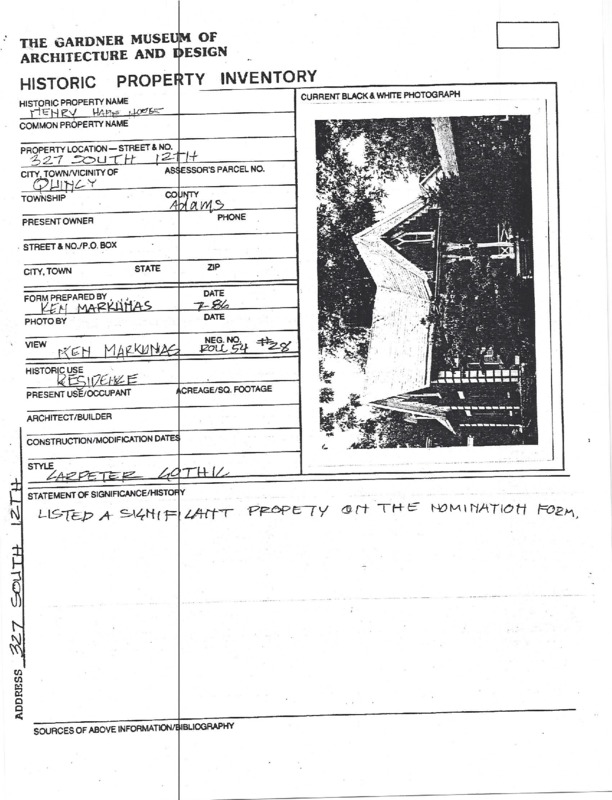 THE GARDNER MUSEUM OF
ARCHITECTURE AND DESIGN
HISTORIC PROPERTY INVENTORY
HISTORIC PROPERTY NAME
HENRY HOUSE
COMMON PROPERTY NAME
PROPERTY LOCATION — STREET & NO.
327 SOUTH 12TH
CITY, TOWN/VICINITY OF ASSESSOR'S PARCEL NO.
QUINCY
TOWNSHIP COUNTY
Adams
PRESENT OWNER PHONE
STREET & NO./P.O. BOX
CITY, TOWN STATE ZIP
FORM PREPARED BY DATE
KEN MARKUNAS 7-86
PHOTO BY DATE
VIEW NEG. NO.
KEN MARKUNAS ROLL 54 #28
HISTORIC USE
RESIDENCE
PRESENT USE/OCCUPANT ACREAGE/SQ. FOOTAGE
ARCHITECT/BUILDER
CONSTRUCTION/MODIFICATION DATES
STYLE
CARPETER GOTHIC
CURRENT BLACK & WHITE PHOTOGRAPH
STATEMENT OF SIGNIFICANCE/HISTORY
LISTED A SIGNIFICANT PROPETY ON THE NOMINATION FORM.
ADDRESS 327 SOUTH 12TH
SOURCES OF ABOVE INFORMATION/BIBLIOGRAPHY